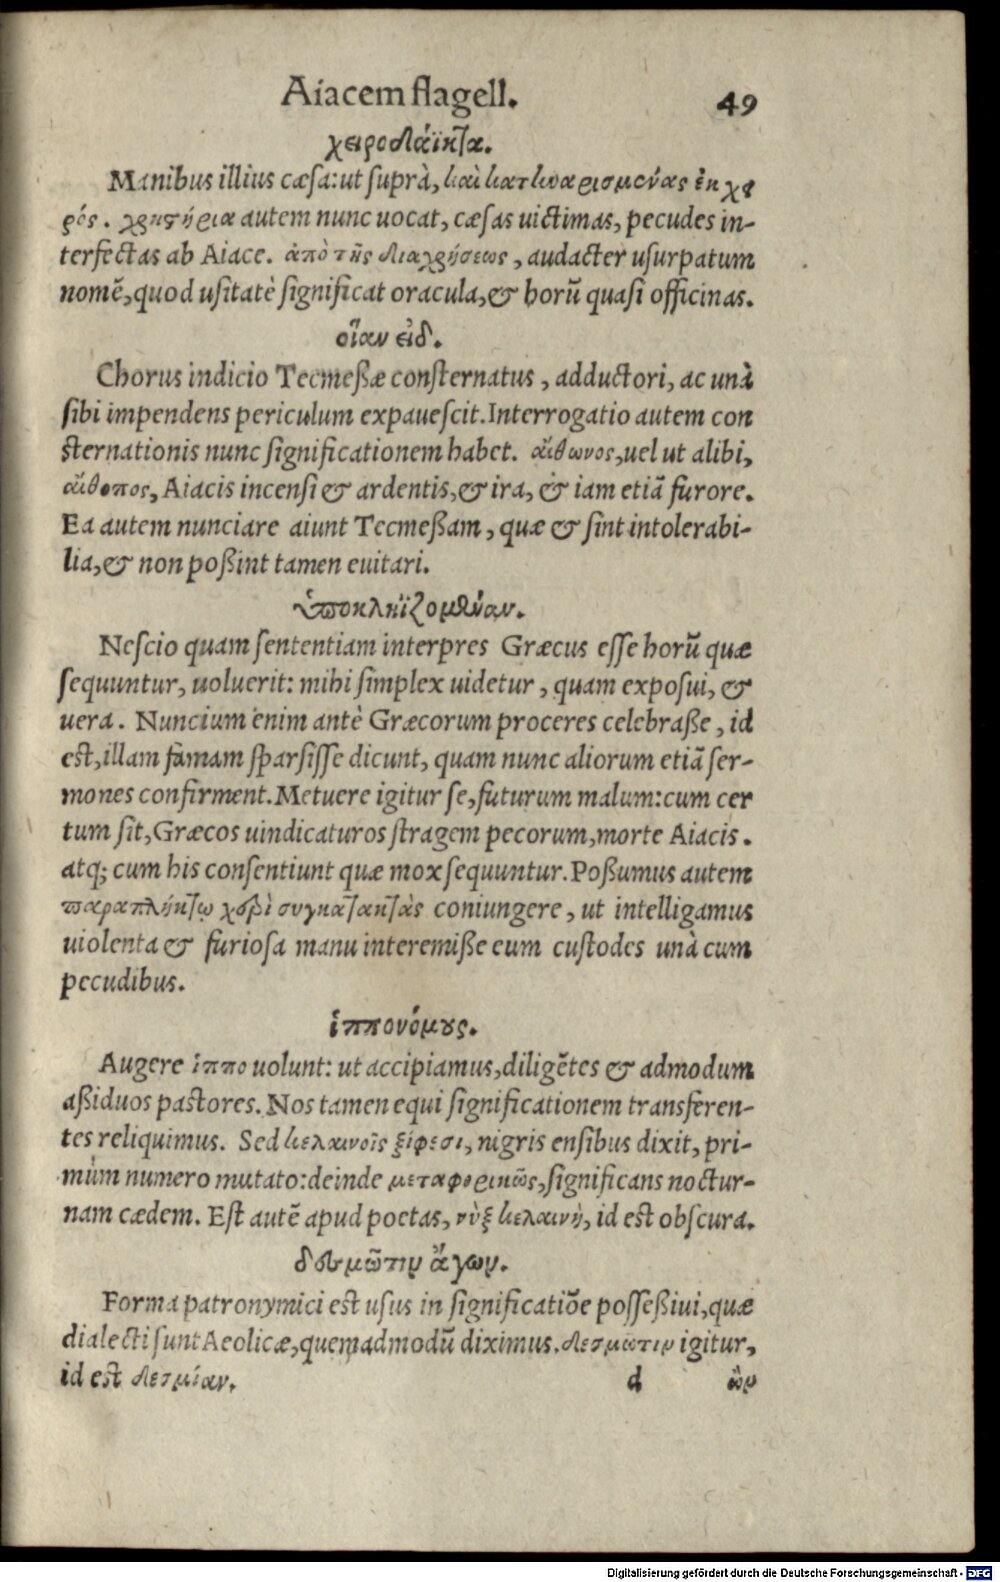 Aiacem flagell. 49
χειροδάϊκτα.
Manibus illius cæsa: ut suprà, καὶ κατηναρισμένας ἐκ χε
ρός. χρηστήρια autem nunc uocat, cæsas uictimas, pecudes in-
terfectas ab Aiace. ἀπὸ τῆς διαχρήσεως, audacter usurpatum
nomẽ, quod usitatè significat oracula, & horũ quasi officinas.
οἵαν ἐιδ.
Chorus indicio Tecmeßæ consternatus, adductori, ac unà
sibi impendens periculum expauescit. Interrogatio autem con
sternationis nunc significationem habet. αἴθωνος, uel ut alibi,
αἴθοπος, Aiacis incensi & ardentis, & ira, & iam etiã furore.
Ea autem nunciare aiunt Tecmeßam, quæ & sint intolerabi-
lia, & non poßint tamen euitari.
ὑποκληϊζομέναν.
Nescio quam sententiam interpres Græcus esse horũ quæ
sequuntur, uoluerit: mihi simplex uidetur, quam exposui, &
uera. Nuncium enim antè Græcorum proceres celebraße, id
est, illam famam sparsisse dicunt, quam nunc aliorum etiã ser-
mones confirment. Metuere igitur se, futurum malum: cum cer
tum sit, Græcos uindicaturos stragem pecorum, morte Aiacis.
atq; cum his consentiunt quæ mox sequuntur. Poßumus autem
παραπλήκτῳ χερὶ συγκατακτὰς coniungere, ut intelligamus
uiolenta & furiosa manu interemiße eum custodes unà cum
pecudibus.
ἱππονόμους.
Augere ἱππο uolunt: ut accipiamus, diligẽtes & admodum
aßiduos pastores. Nos tamen equi significationem transferen-
tes reliquimus. Sed κελαινοῖς ξίφεσι, nigris ensibus dixit, pri-
mùm numero mutato: deinde μεταφορικῶς, significans noctur-
nam cædem. Est autẽ apud poetas, νὺξ κελαινὴ, id est obscura.
δεσμῶτιν ἄγων.
Forma patronymici est usus in significatiõe posseßiui, quæ
dialecti sunt Aeolicæ, quemadmodũ diximus. δεσμῶτιν igitur,
id est δεσμίαν. d ὢν
Digitalisierung gefördert durch die Deutsche Forschungsgemeinschaft - DFG